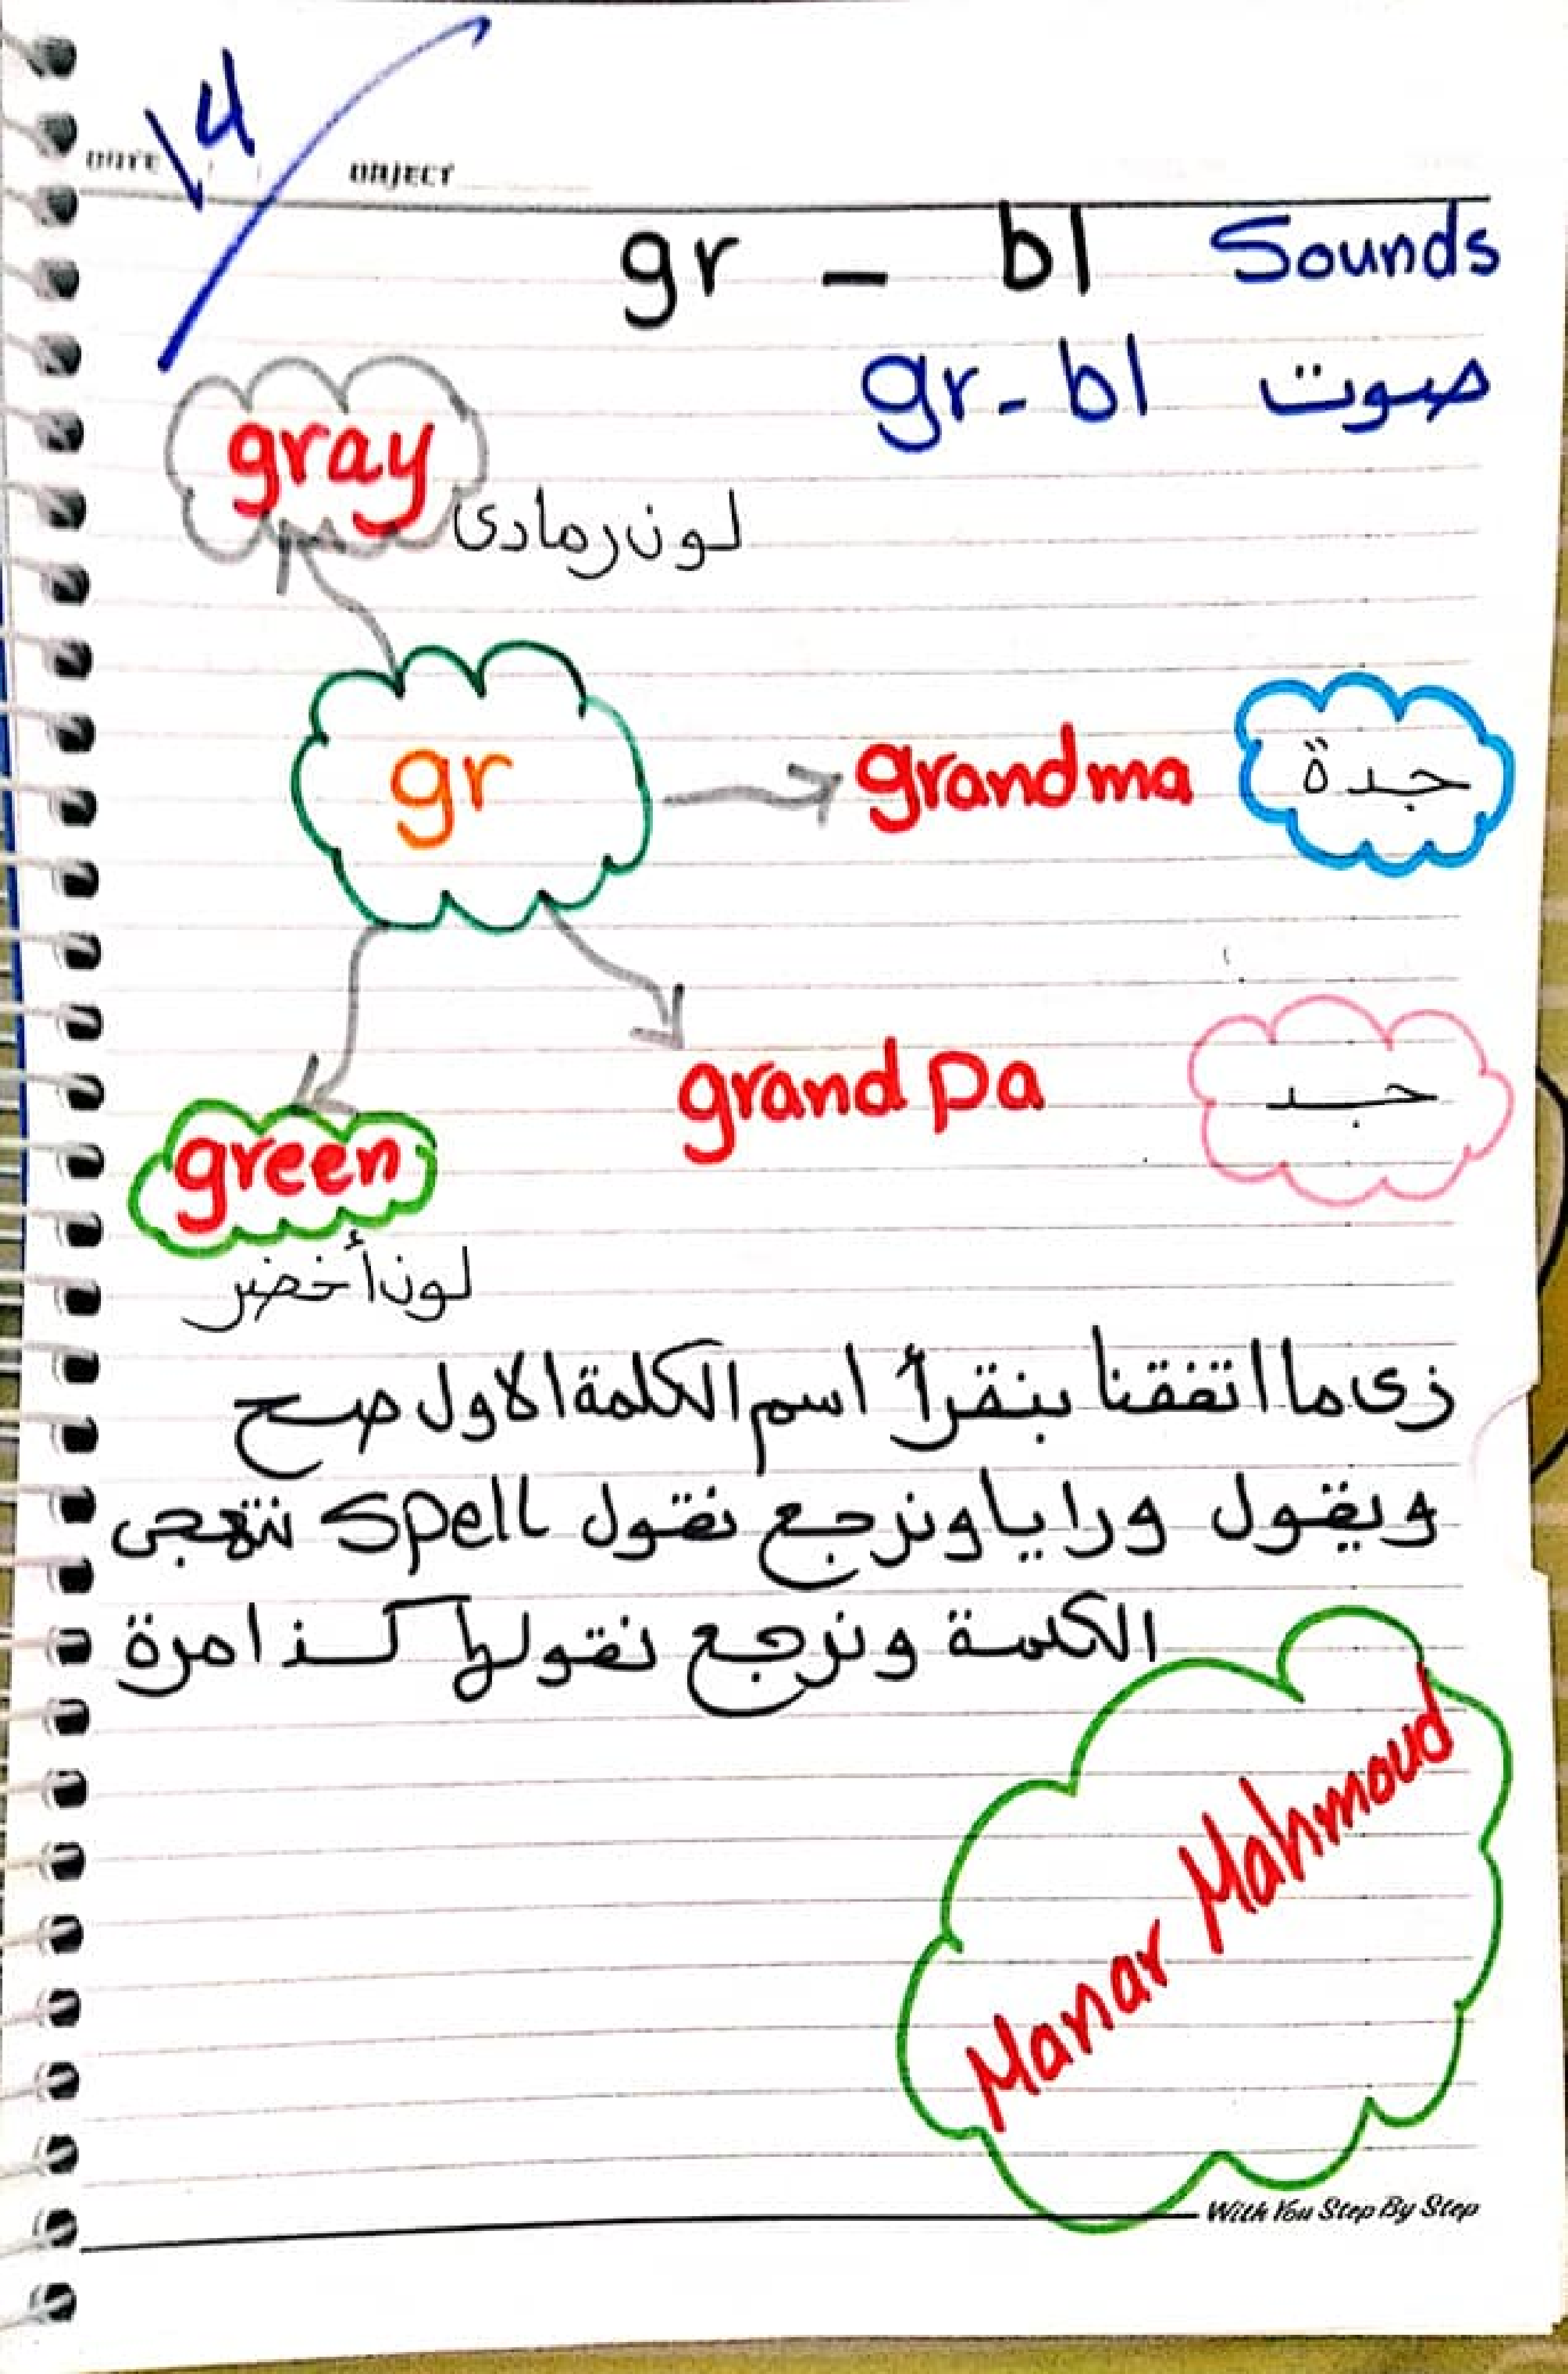 DATE
OBJECT
gr - bl Sounds
gr - bl صوت
gray
لون رمادى
gr
grandma
جدة
grandpa
جد
green
لون أخضر
زى ما اتفقنا بنقرأ اسم الكلمة الاول صح
ويقول ورايا ونرجع نقول spell نتهجى
الكلمة ونرجع نقولها كذا مرة
Manar Mahmoud
With You Step By Step